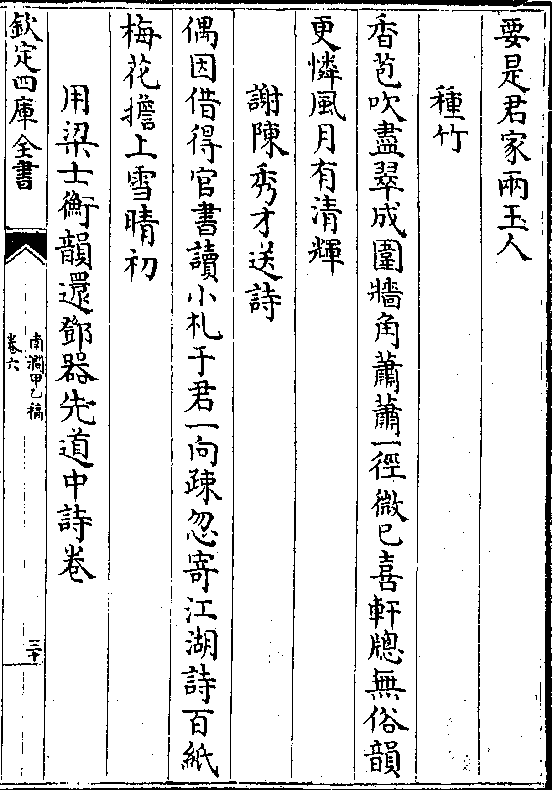 要是君家兩玉人
種竹
香苞吹盡翠成圍牆角蕭蕭一徑微已喜軒牕無俗韻
更憐風月有清輝
謝陳秀才送詩
偶因借得官書讀小札于君一向疎忽寄江湖詩百紙
梅花擔上雪晴初
用梁士衡韻還鄧器先道中詩卷
欽定四庫全書
南澗甲乙稿
卷六
三十